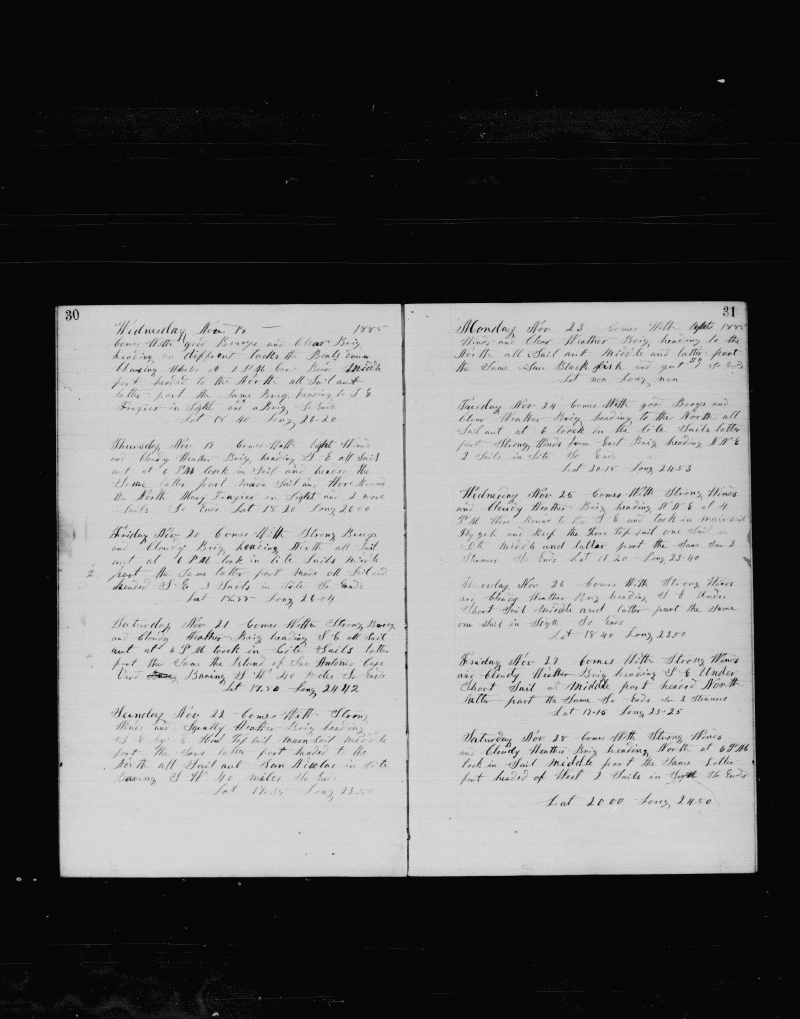 30
Wednesday Nov 1885
Comes With good Breeze and Clear Brig
heading on different tacks the Boats down
Chasing at 2 P M Came Middle
part headed to the North all Sail out
latter part the Same Brig heading to S E
Frazier in Sight and a Brig So Ends
Lat 18 40 Long 26-20
Thursday Nov 19 Comes With light Winds
and Cloudy Weather Brig heading S E all Sail
out at 6 P M took in Sail and headed the
Same latter part made Sail and Wore Round
the North Marj Frazier in Sight and 2 more
Sails So Ends Lat 18 20 Long 26 00
Friday Nov 20 Comes With Strong Breeze
and Cloudy Brig heading North all Sail
out at 6 P M took in lite Sails middle
part the Same latter part made all Sail and
headed S E 3 Sails in Site So Ends
Lat Long 26-04
Saturday Nov 21 Comes With Strong Breeze
and Cloudy Weather Brig heading S E all Sail
out at 6 P M took in Lite Sails latter
part the Same the Island of San Antonio Cape
Verd Baring S W 40 Miles So Ends
Lat 17.50 Long 24 42
Sunday Nov 22 Comes With Strong
Winds and Squally Weather Brig heading
main Sail middle
part the Same latter part headed to the
North all Sail out San Nicolas in Site
Baring S W 40 miles So Ends
Lat 17-35 Long 23-50
31
Monday Nov 23 Comes With light 1885
Winds and Clear Weather Brig heading to the
North all Sail out Middle and latter part
the Same Saw Black fish and got So Ends
Lat non Long non
Tuesday Nov 24 Comes With good Breeze and
Clear Weather Brig heading to the North all
Sail out at 6 took in the lite Sails latter
part Strong Winds from East Brig heading N N E
2 Sails in Site So Ends
Lat 20-15 Long 24-53
Wednesday Nov 25 Comes With Strong Winds
and Cloudy Weather Brig heading N N E at 4
P M Wore to the S E and took in main Sail
Fly gib and Keep the Fore Top Sail one Sail in
Site Middle and latter part the Same Saw 2
Steamers So Ends Lat 19-20 Long 23-40
Thursday Nov 26 Comes With Strong Winds
and Cloudy Weather Brig heading S E Under
Short Sail Middle and latter part the Same
one Sail in Sight So Ends
Lat 18 40 Long 23 00
Friday Nov 27 Comes With Strong Winds
and Cloudy Weather Brig heading S E Under
Short Sail Middle part headed North
latter part the Same So Ends Saw 2 Steamers
Lat 19-16 Long 23-25
Saturday Nov 28 Comes With Strong Winds
and Cloudy Weather Brig heading North at 6 P M
took in Sail middle part the Same Latter
part headed of West 2 Sails in Sight So Ends
Lat 20 00 Long 24 50